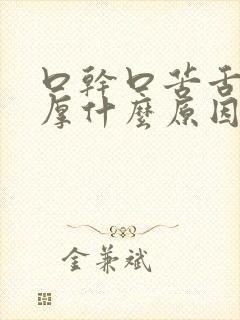 口幹口苦舌
厚什麼原因
金兼斌